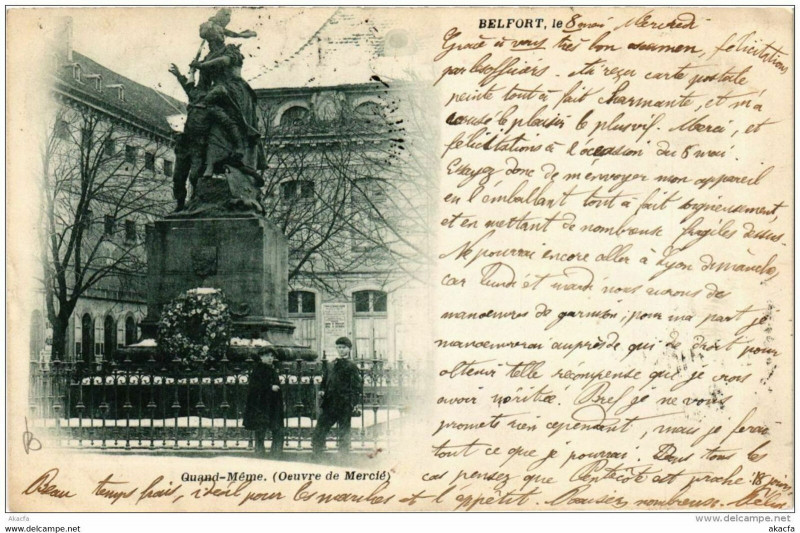 BELFORT, le 8 mai Mercredi
Grâce à vous très bon examen, félicitations
par les officiers. Ai reçu carte postale
peinte tout à fait charmante, et m'a
causé le plaisir le plus vif. Merci, et
félicitations à l'occasion du 8 mai.
Essayez donc de m'envoyer mon appareil
en l'emballant tout à fait soigneusement,
et en mettant de nombreux fragiles dessus.
Ne pourrai encore aller à Lyon dimanche,
car lundi et mardi nous aurons des
manoeuvres de garnison; pour ma part je
manoeuvrerai auprès de qui de droit pour
obtenir telle récompense que je crois
avoir méritée. Bref je ne vous
promets rien cependant, mais je ferai
tout ce que je pourrai. Dans tous les
cas pensez que Pentecôte est proche
Quand-Même. (Oeuvre de Mercié)
Beau temps frais, idéal pour les marches et l'appétit. Baisers nombreux.
Akafoca
www.akafoca.com